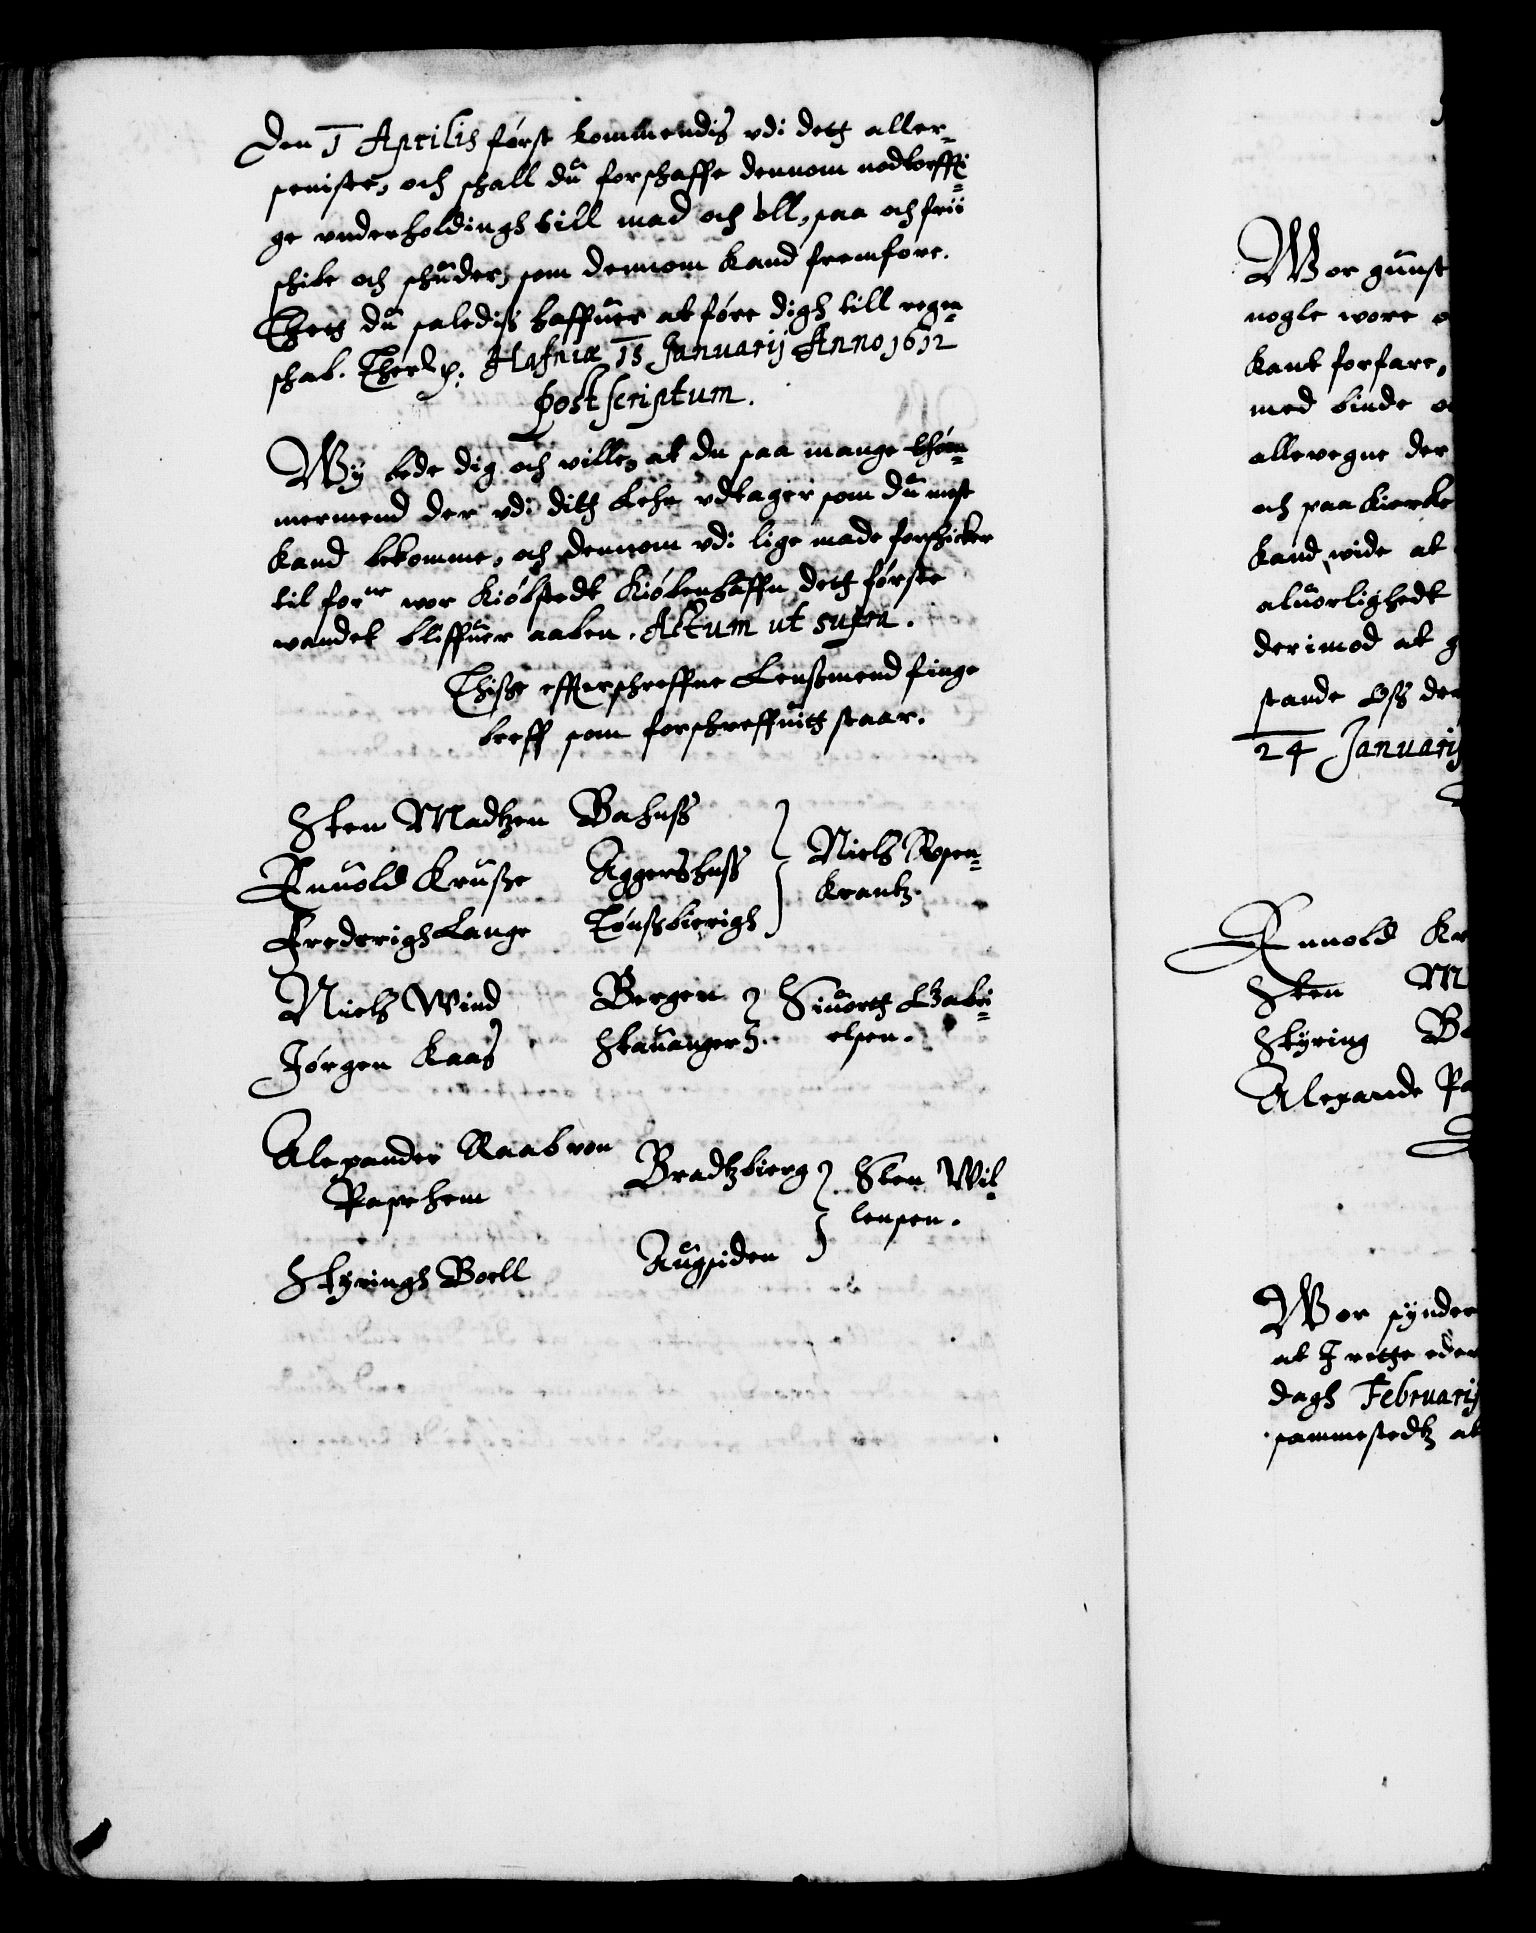 Den 1 Aprilis først kommendis vdi dett aller-
seniste, och schall du forschaffe dennom nodtorffti-
ge vnderholdingh till mad och øll, saa och frii
schibe och schuder, som dennom kand fremføre.
Thett du saledis haffuer at føre digh till regn-
schab. Ther
Hafniæ 15 Januarij Anno 1612
Postscriptum.
Wy bede dig och ville, at du saa mange thøm-
mermend der vdi ditt Lehn vdtager som du mest
kand bekomme, och dennom vdi lige made forschicker
til for.ne wor Kiøbstedt Kiøbenhaffn dett første
wandet bliffuer aaben. Actum ut supra.
Thisse effterschreffne Lenssmend finge
breff som forschreffuitt staar.
Sten Madtzen Bahuss
Enuold Krusze Aggershuss } Niels Rosen-
krantz.
Frederigh Lange Tønssbierigh
Niels Wind Bergen } Siuortt Gabri-
elsen.
Jørgen Kaas Stauanger
Alexander Raab von
Papehem Bradtzbierg } Sten Wil-
lensen.
Styringh Boell Augsiden
Wor gunst
nogle wore
kant forfare,
med binde
allevegne der
och paa Kierke
kand, wide at
aluorlighedt
derimod at
stande Oss
24 Januarij
Enuold Kr
Sten M
Styring B
Alexande Pa
Wor synder
at I rette eder
dagh Februarij
sammestedtz at